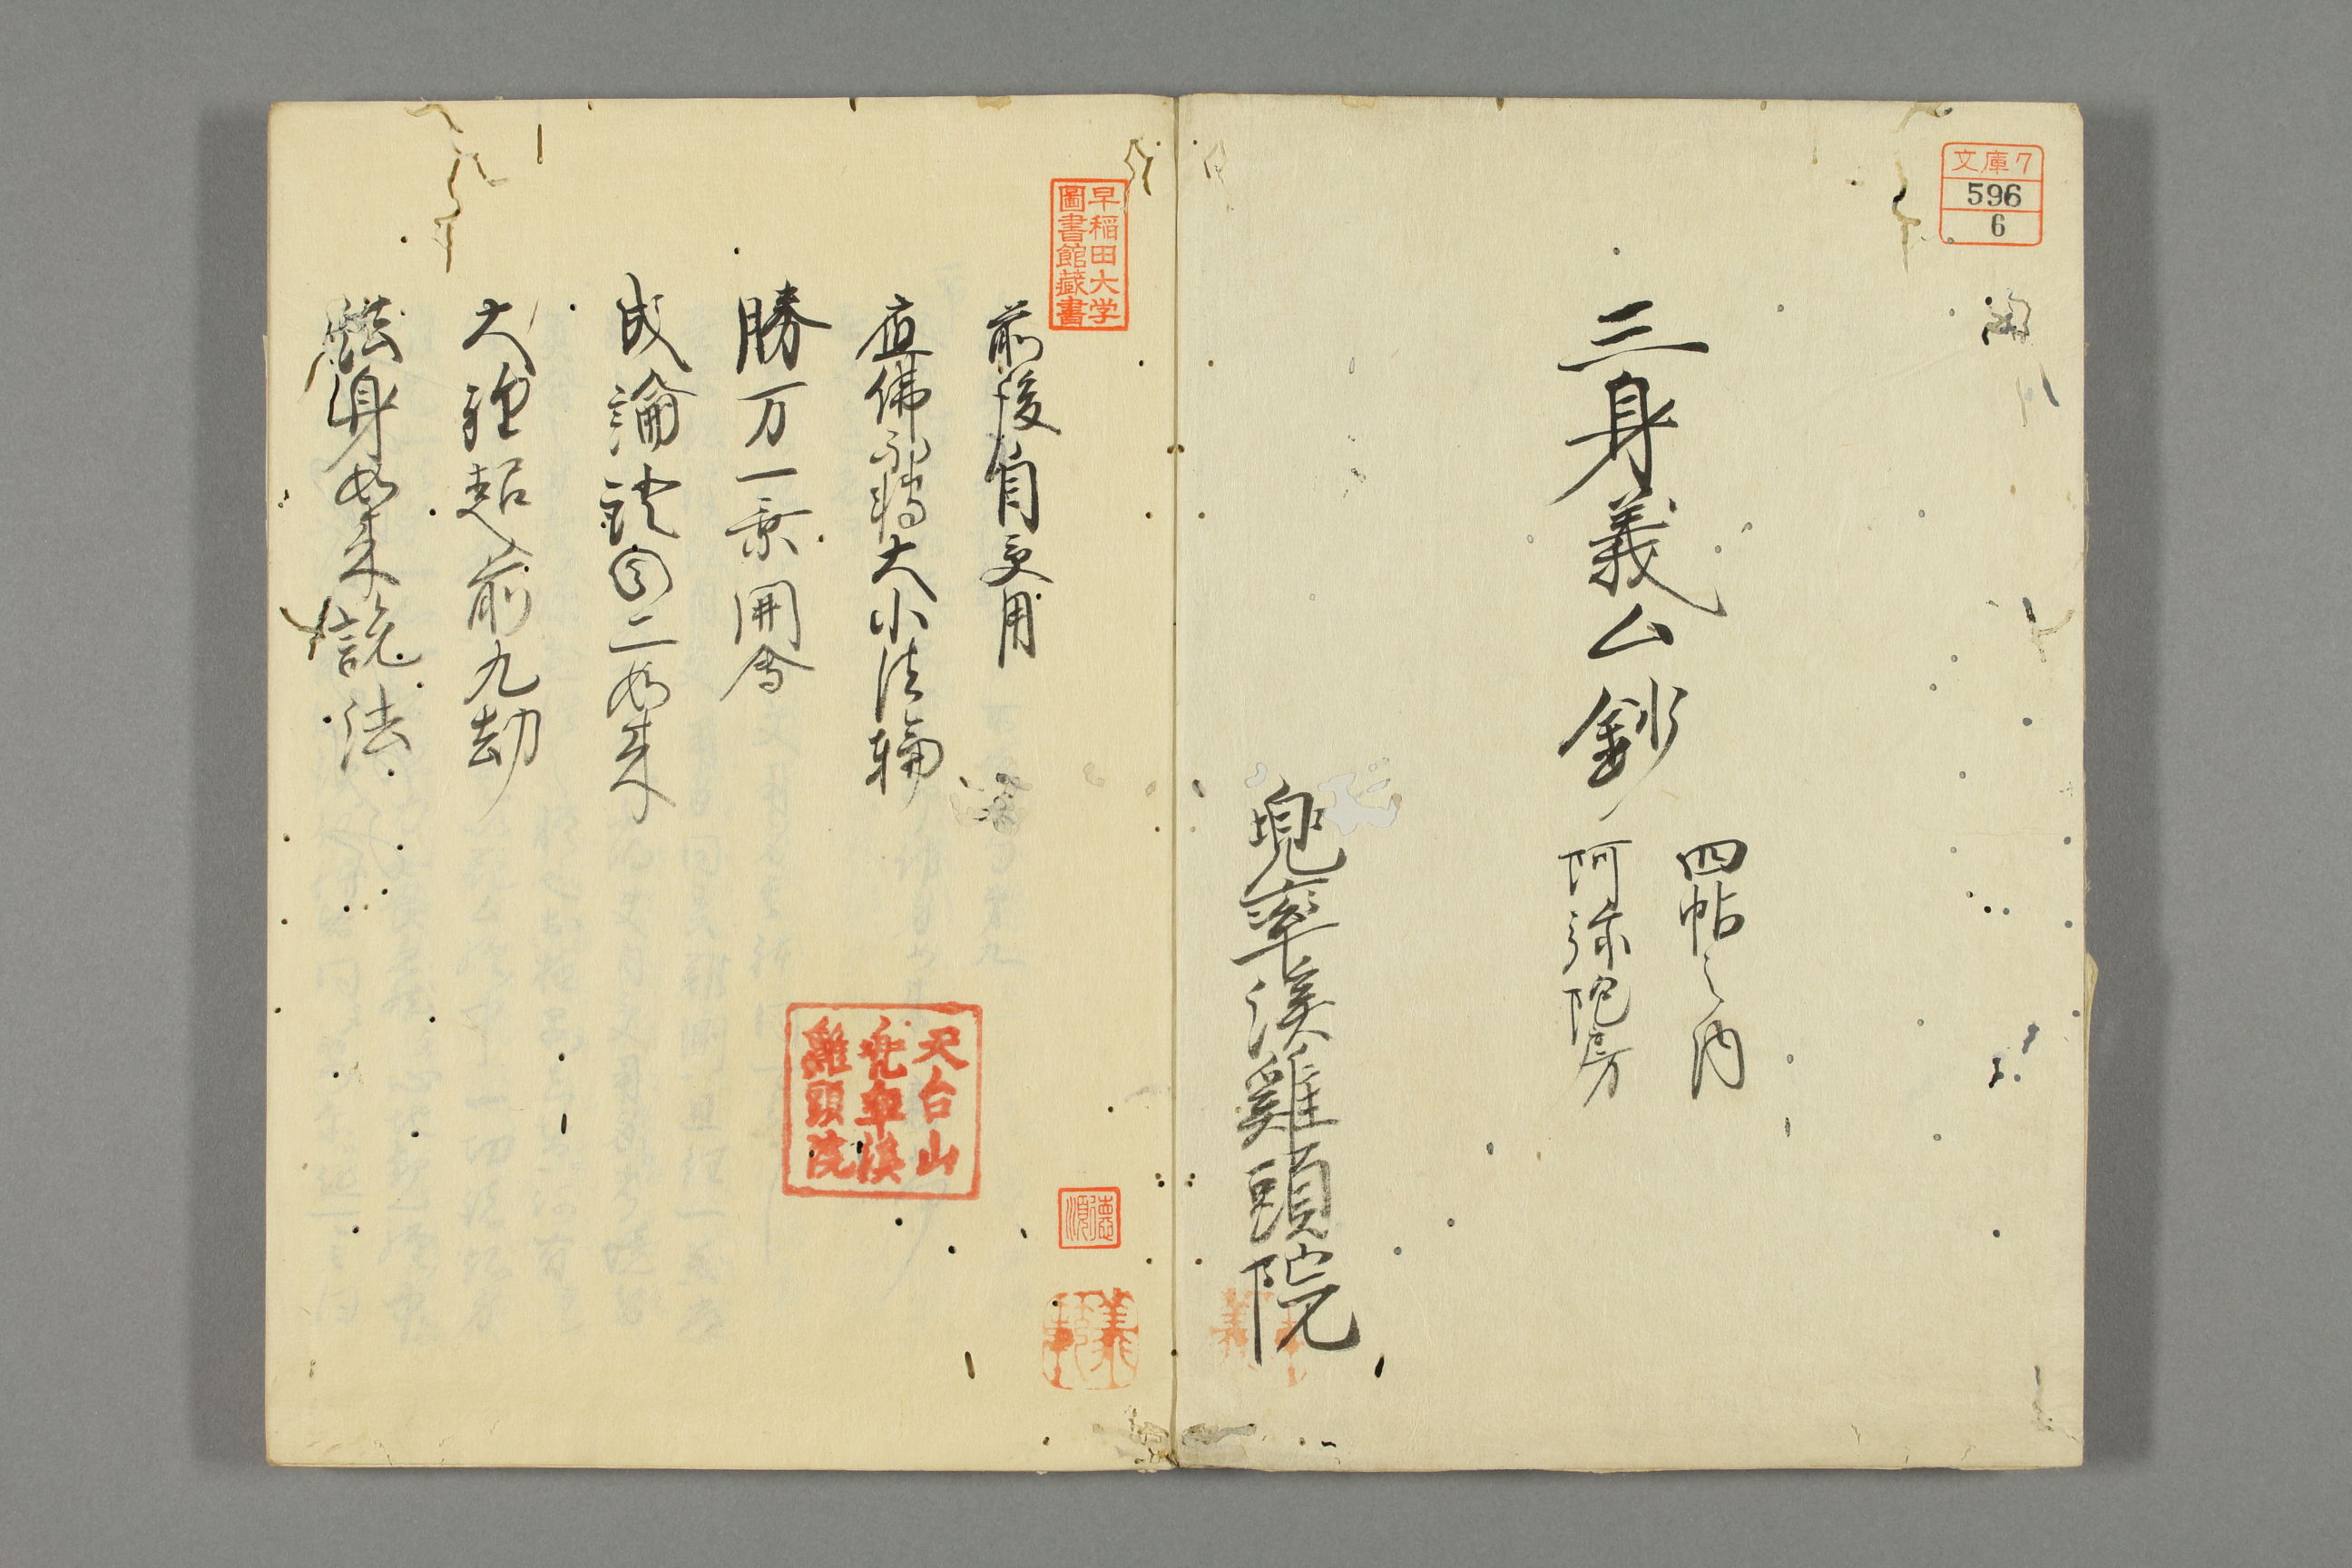 文庫7
596
6
三身義ム鈔
四帖之内
阿弥陀房
兜率溪雞頭院
早稲田大学
圖書館藏書
前後自受用
直佛不轉大小法輪
勝万一乗開会
成論二如来
大超前九劫
法身如来説法
天台山
兜率溪
雞頭院
德
義